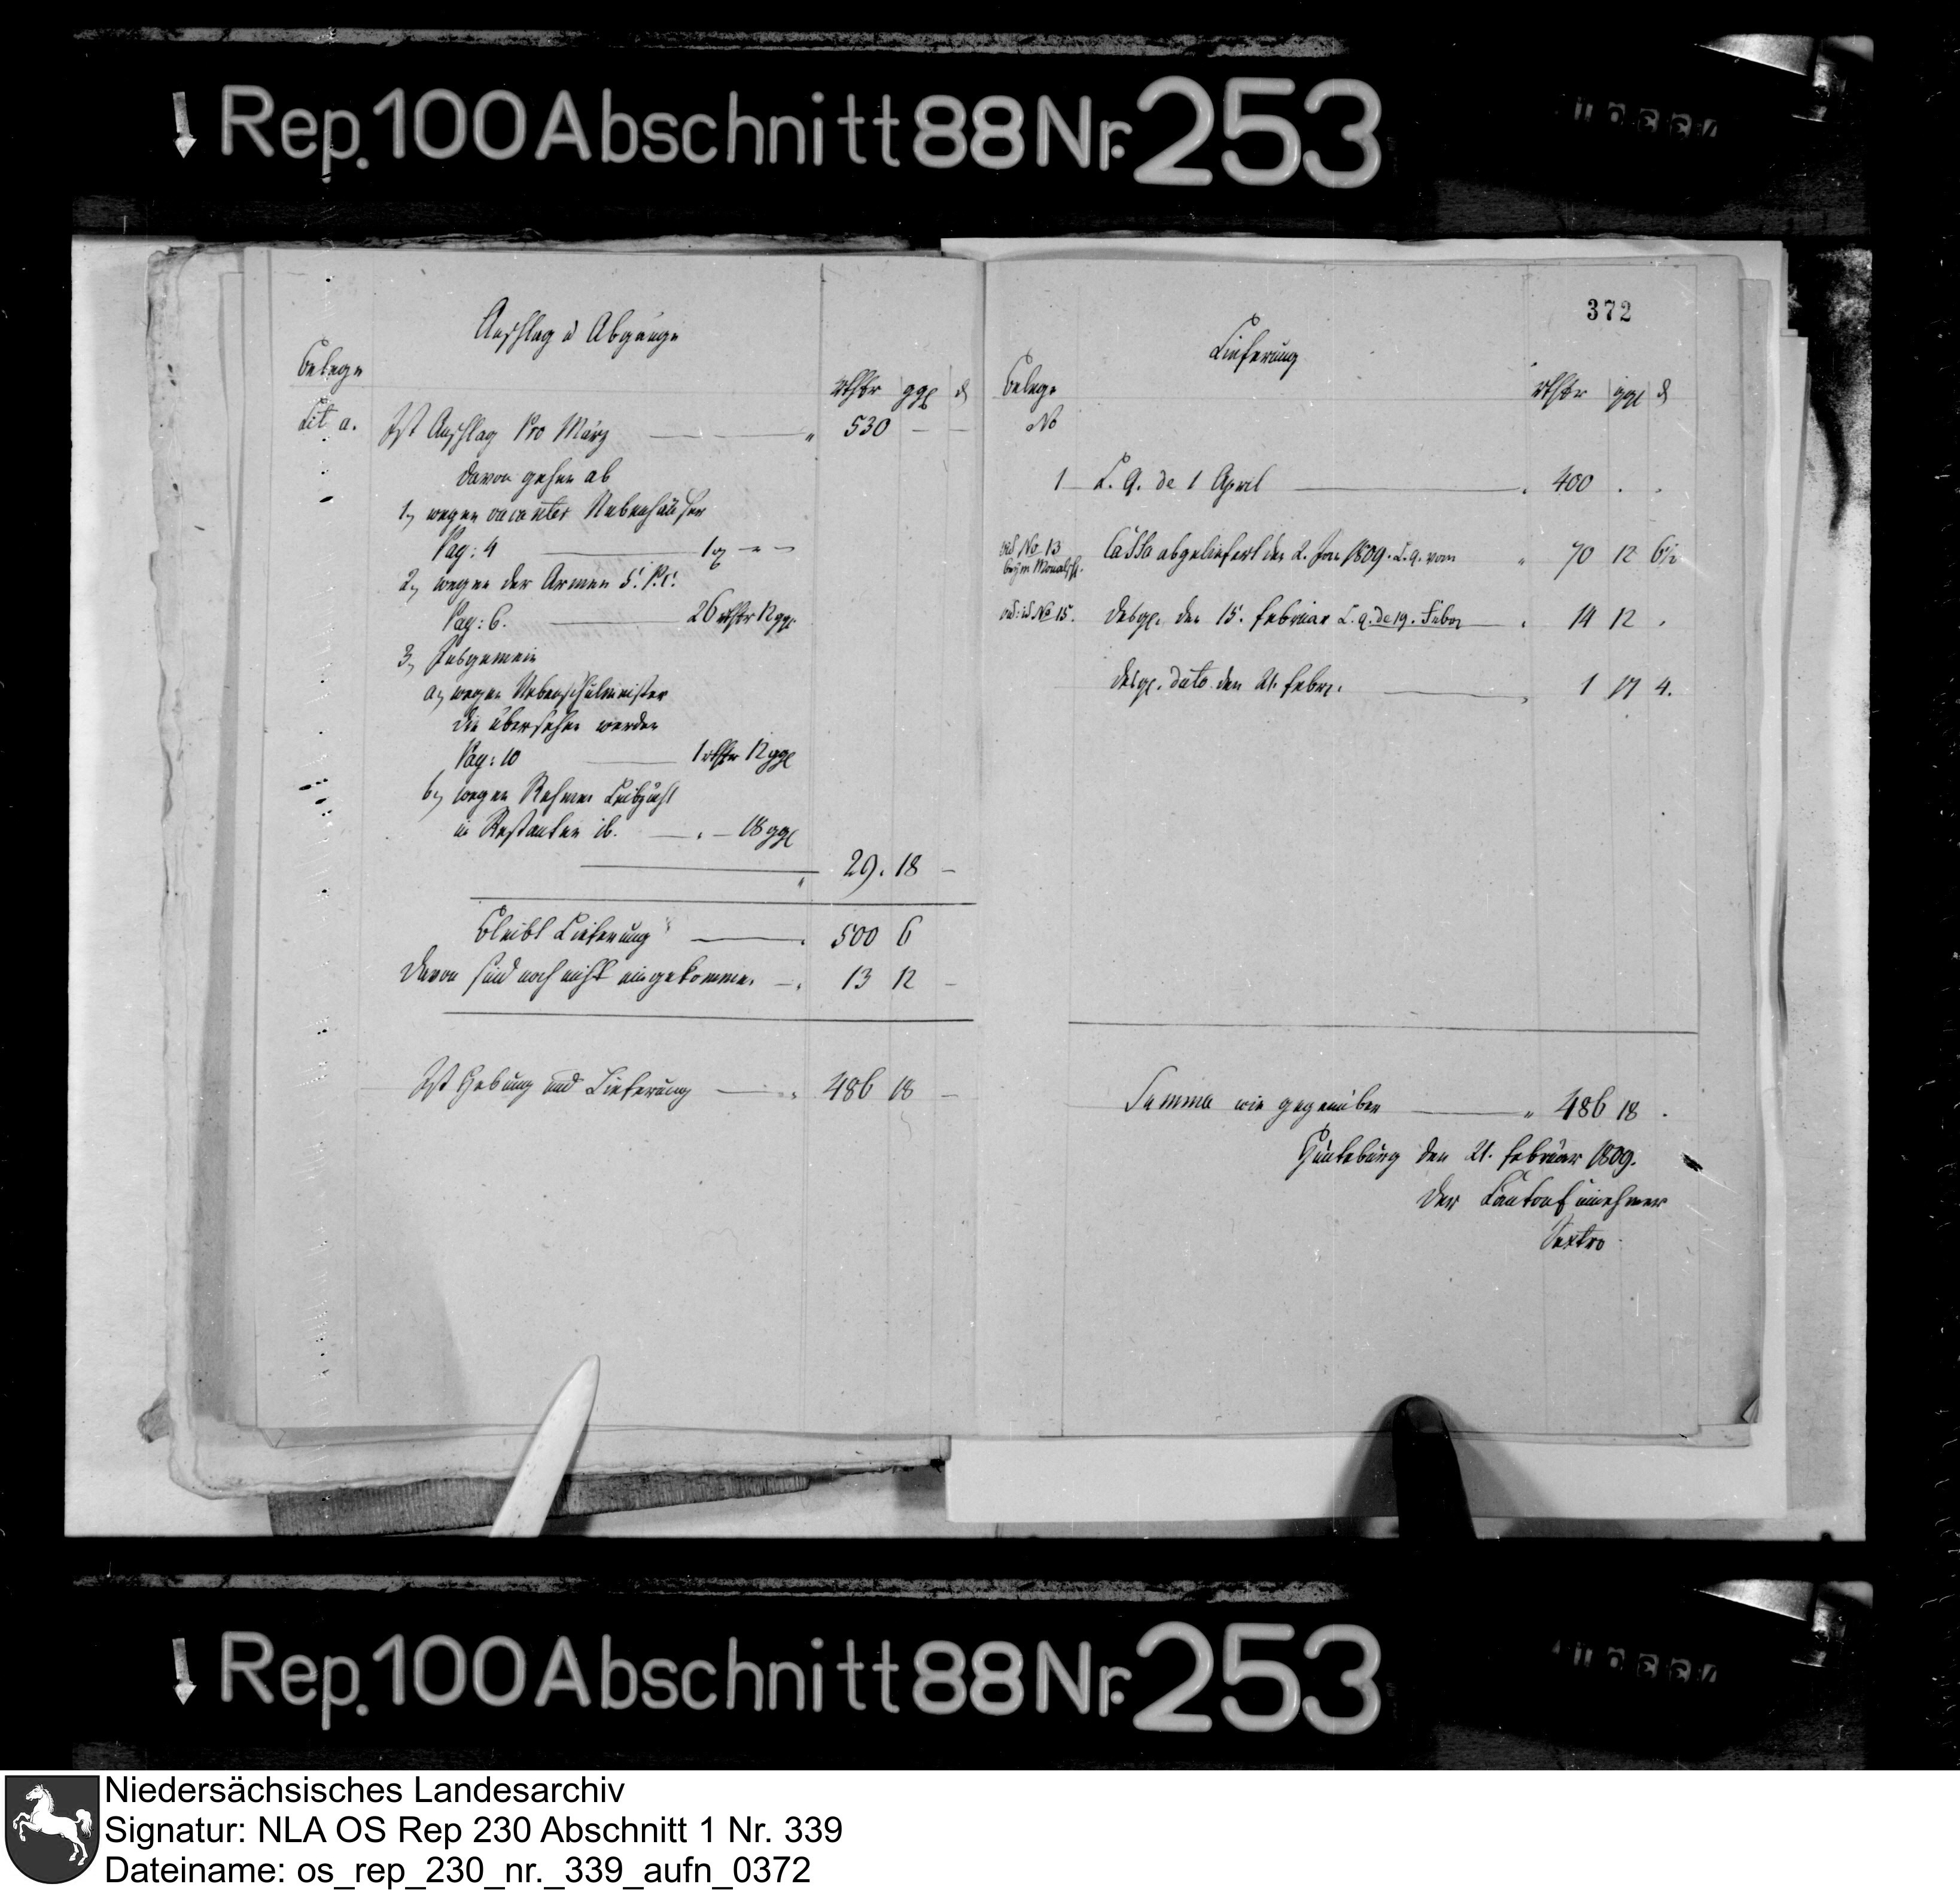 Rep. 100 Abschnitt 88 Nr. 253
Anschlag u Abgänge
Belege
rthlr ggl d
Lit a. Ist Anschlag Pro März — " 530 — —
davon gehen ab
1, wegen vacanter Nebenhäuser
Pag: 4 —
2, wegen der Armen
Pag: 6. — 26 rthlr 12 ggl
3, Insgemein
a, wegen
die übersehen werden
Pag: 10 — 1 rthlr 12 ggl
b, wegen Leibzucht
in Restanten ib. — " — 18 ggl
" 29. 18 —
Bleibt Lieferung — " 500 6
davon sind noch nicht eingekommen — " 13 12 —
Ist Hebung und Lieferung — " 486 18 —
372
Lieferung
Belege
No
rthlr ggl d
1 L. Q. de 1 April — " 400 . .
No 13
Cassa abgeliefert den 2. Jan. 1809. L. q. vom " 70 12
No 15. desgl. den 15. Februar L. q. de 19. Febr — " 14 12 .
desgl. dato den 21. Febr. — " 1 17 4.
Summa wie gegenüber — " 486 18 .
den 21. Februar 1809.
Der Cantonseinnehmer
Sextro
Rep. 100 Abschnitt 88 Nr. 253
Niedersächsisches Landesarchiv
Signatur: NLA OS Rep 230 Abschnitt 1 Nr. 339
Dateiname: os_rep_230_nr._339_aufn_0372